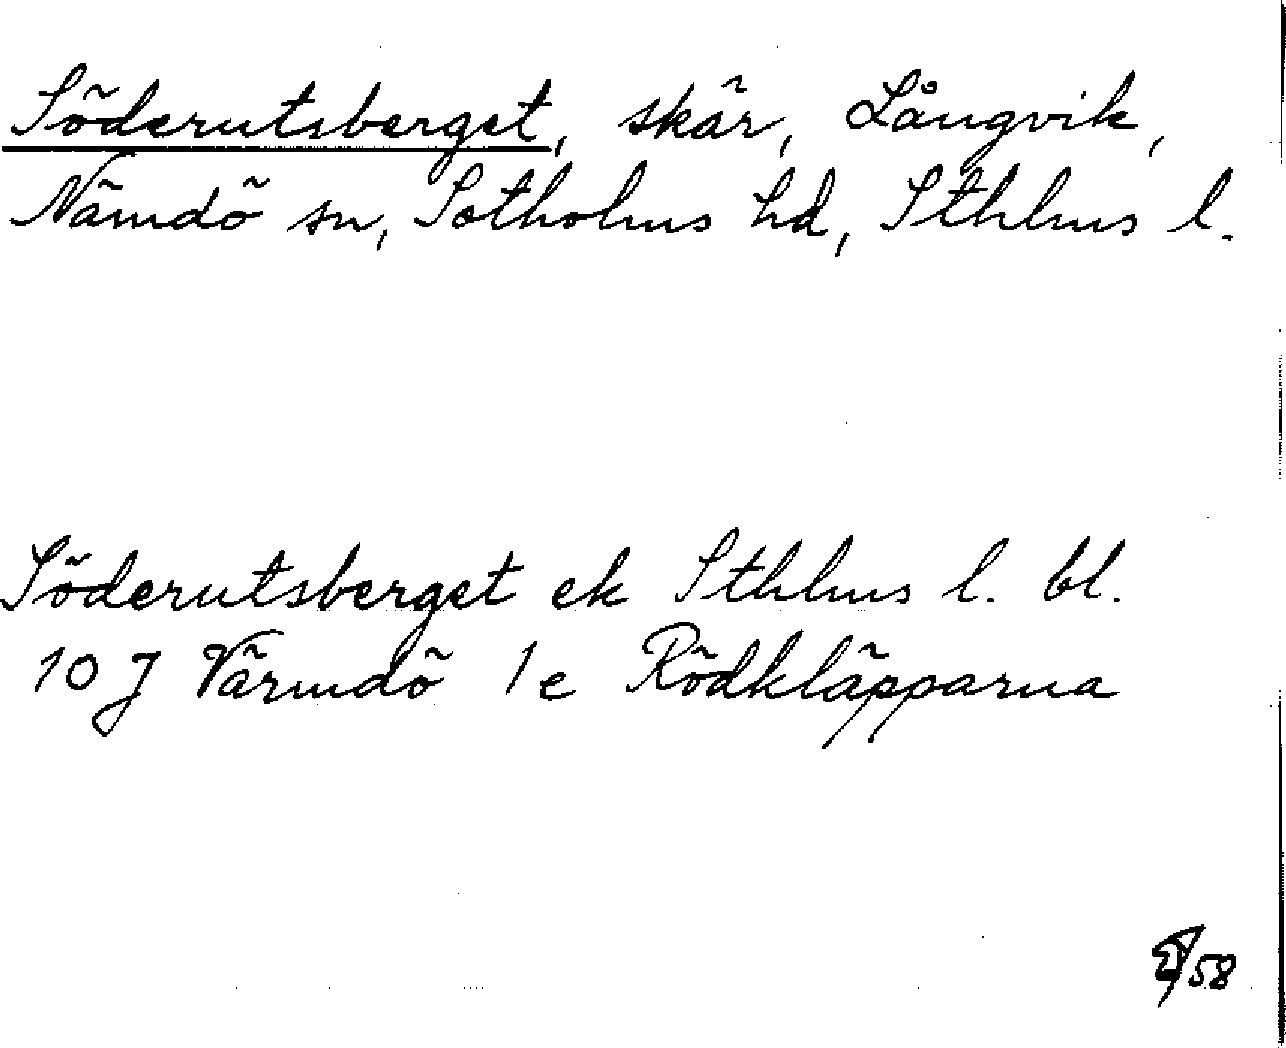 Söderutsberget, skär, Långvik,
Nämdö sn, Sotholms hd, Sthlms l.
Söderutsberget ek Sthlms l. bl.
10 J Värmdö 1e Rödkläpparna
/58